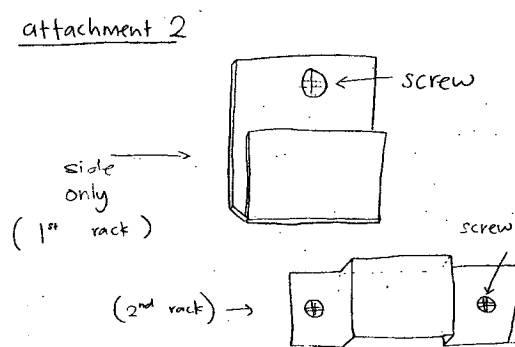 attachment 2
screw
side
only
(1st rack)
screw
(2nd rack)